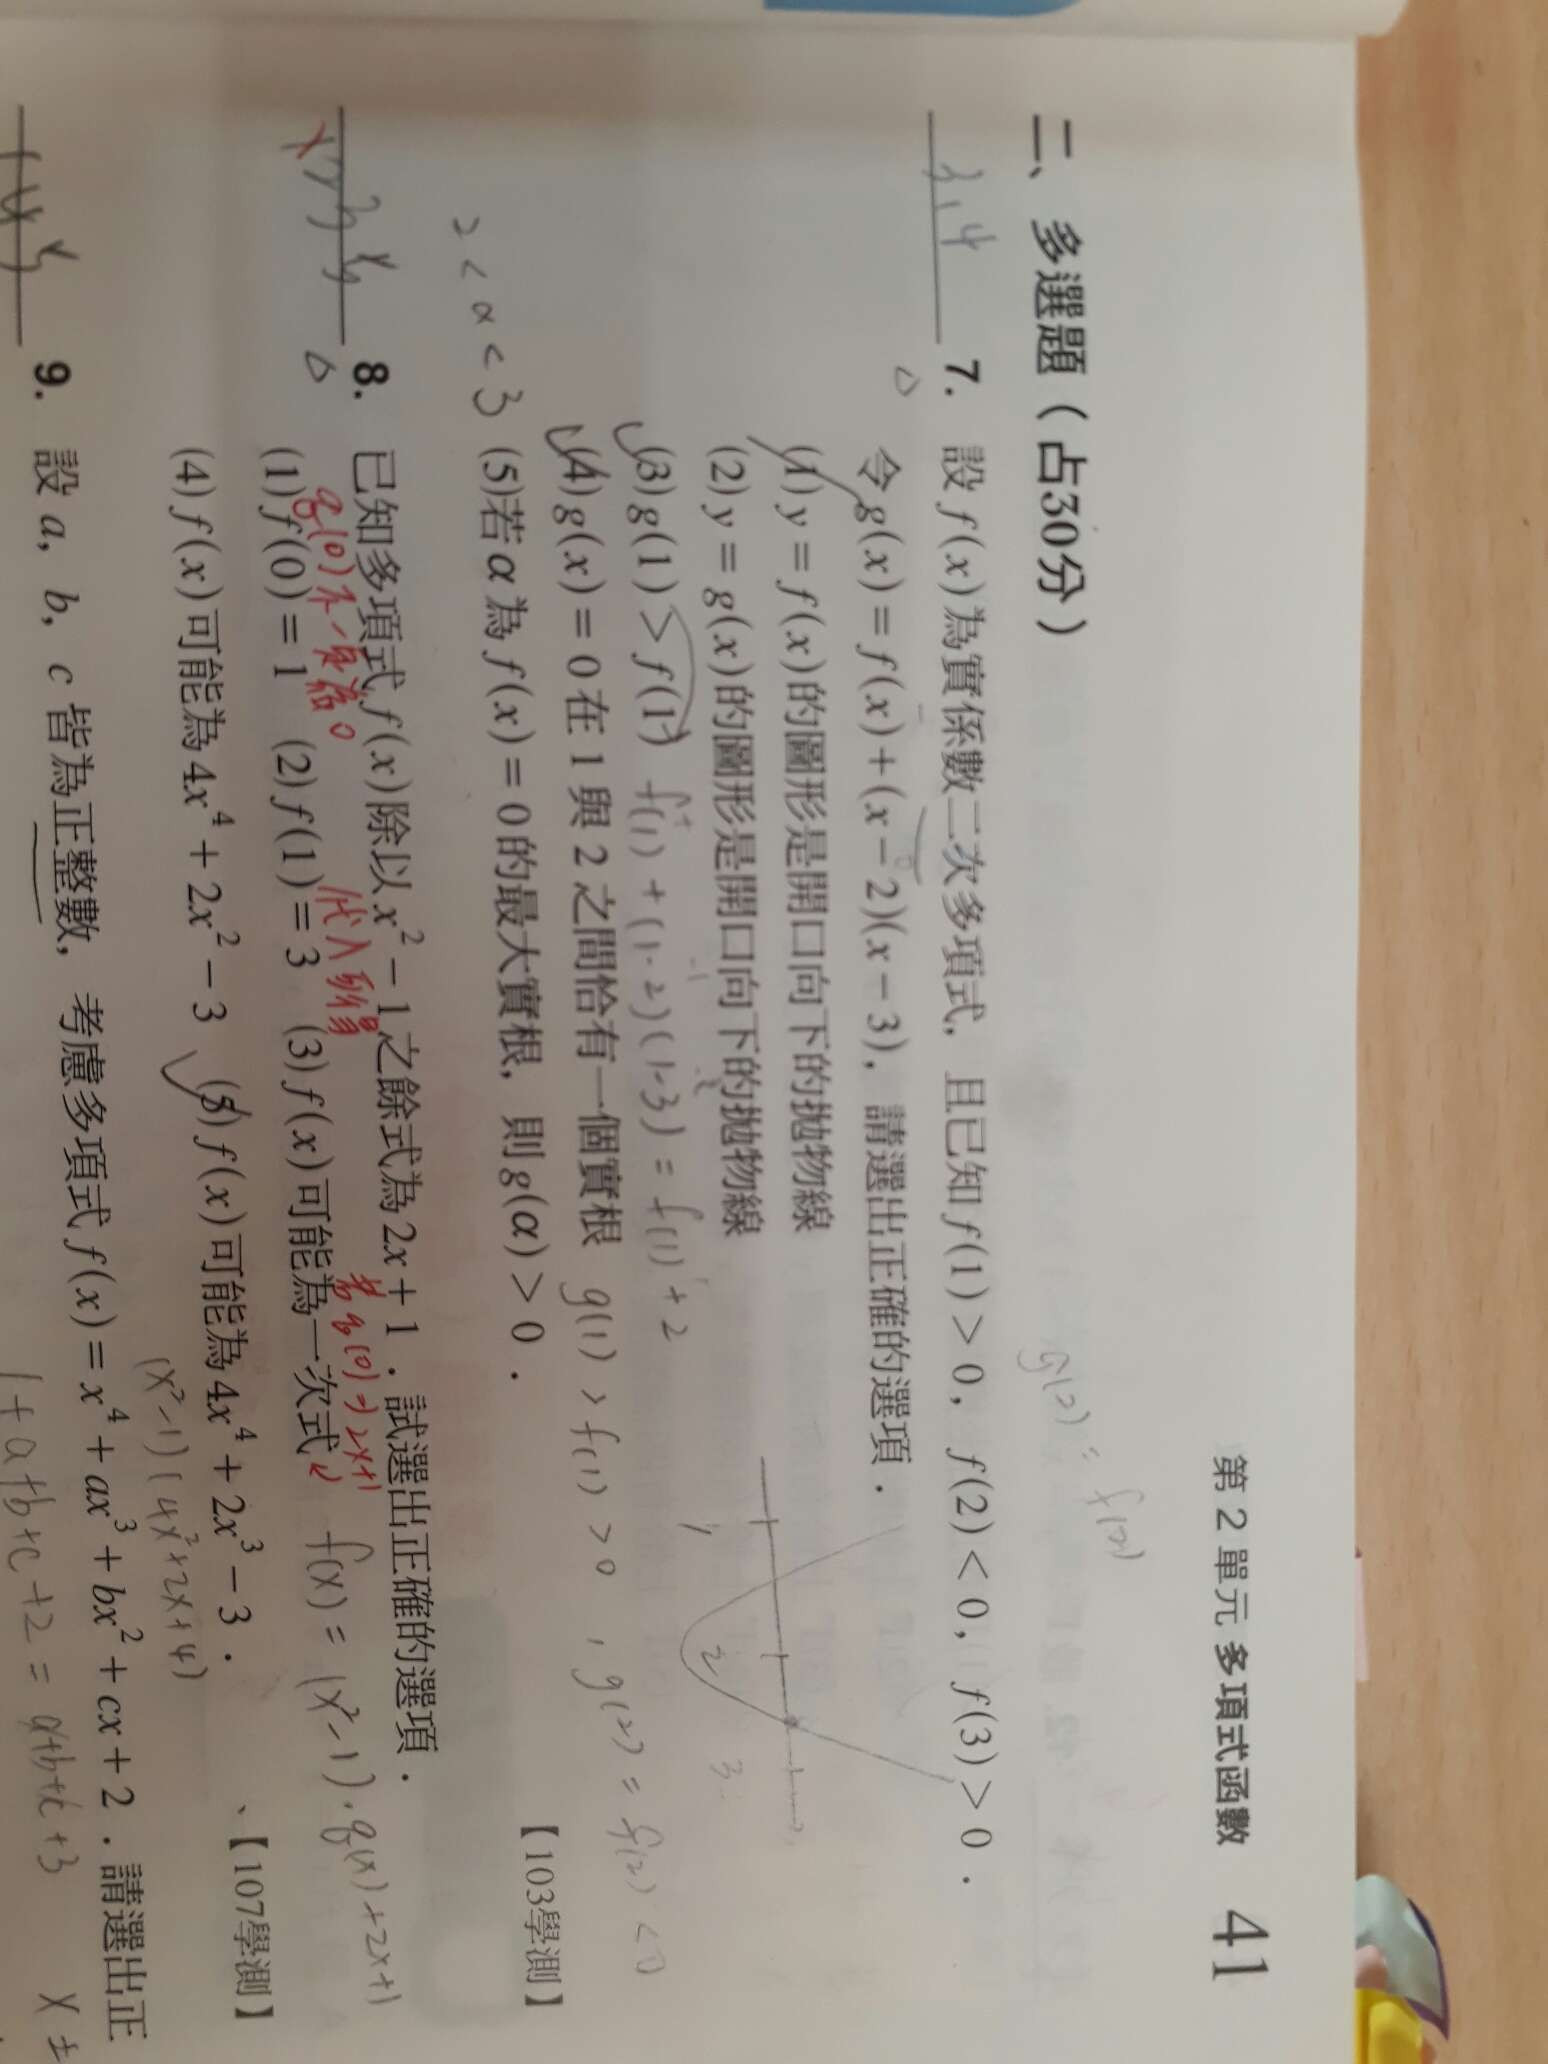 第 2 單元 多項式函數 41
g(2) = f(2)
二、多選題(占30分)
3,4
7. 設 f(x) 為實係數二次多項式,且已知 f(1) > 0, f(2) < 0, f(3) > 0.
令 g(x) = f(x) + (x − 2)(x − 3),請選出正確的選項.
(1) y = f(x) 的圖形是開口向下的拋物線
(2) y = g(x) 的圖形是開口向下的拋物線
1 2 3
(3) g(1) > f(1) f(1) + (1-2)(1-3) = f(1) + 2
(4) g(x) = 0 在 1 與 2 之間恰有一個實根 g(1) > f(1) > 0 , g(2) = f(2) < 0
(5) 若 α 為 f(x) = 0 的最大實根,則 g(α) > 0. 【103學測】
2 < α < 3
8. 已知多項式 f(x) 除以 x² − 1 之餘式為 2x + 1.試選出正確的選項.
q(0)不一定為0 代入所得 若q(0)→2x+1
(1) f(0) = 1 (2) f(1) = 3 (3) f(x) 可能為一次式 f(x) = (x²-1)·q(x)+2x+1
(4) f(x) 可能為 4x⁴ + 2x² − 3 (5) f(x) 可能為 4x⁴ + 2x³ − 3. 【107學測】
(x²-1)(4x²+2x+4)
9. 設 a, b, c 皆為正整數,考慮多項式 f(x) = x⁴ + ax³ + bx² + cx + 2.請選出正
1+a+b+c+2 = a+b+c+3